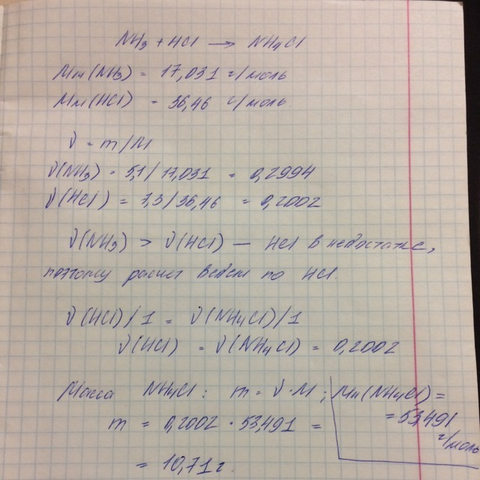 NH3 + HCl → NH4Cl
Mм(NH3) = 17,031 г/моль
Mм(HCl) = 36,46 г/моль
ν = m/M
ν(NH3) = 5,1/17,031 = 0,2994
ν(HCl) = 7,3/36,46 = 0,2002
ν(NH3) > ν(HCl) — HCl в недостатке,
поэтому расчет ведем по HCl.
ν(HCl)/1 = ν(NH4Cl)/1
ν(HCl) = ν(NH4Cl) = 0,2002
Масса NH4Cl: m = ν·M; Mм(NH4Cl) =
= 53,491
г/моль
m = 0,2002 · 53,491 =
= 10,71 г.